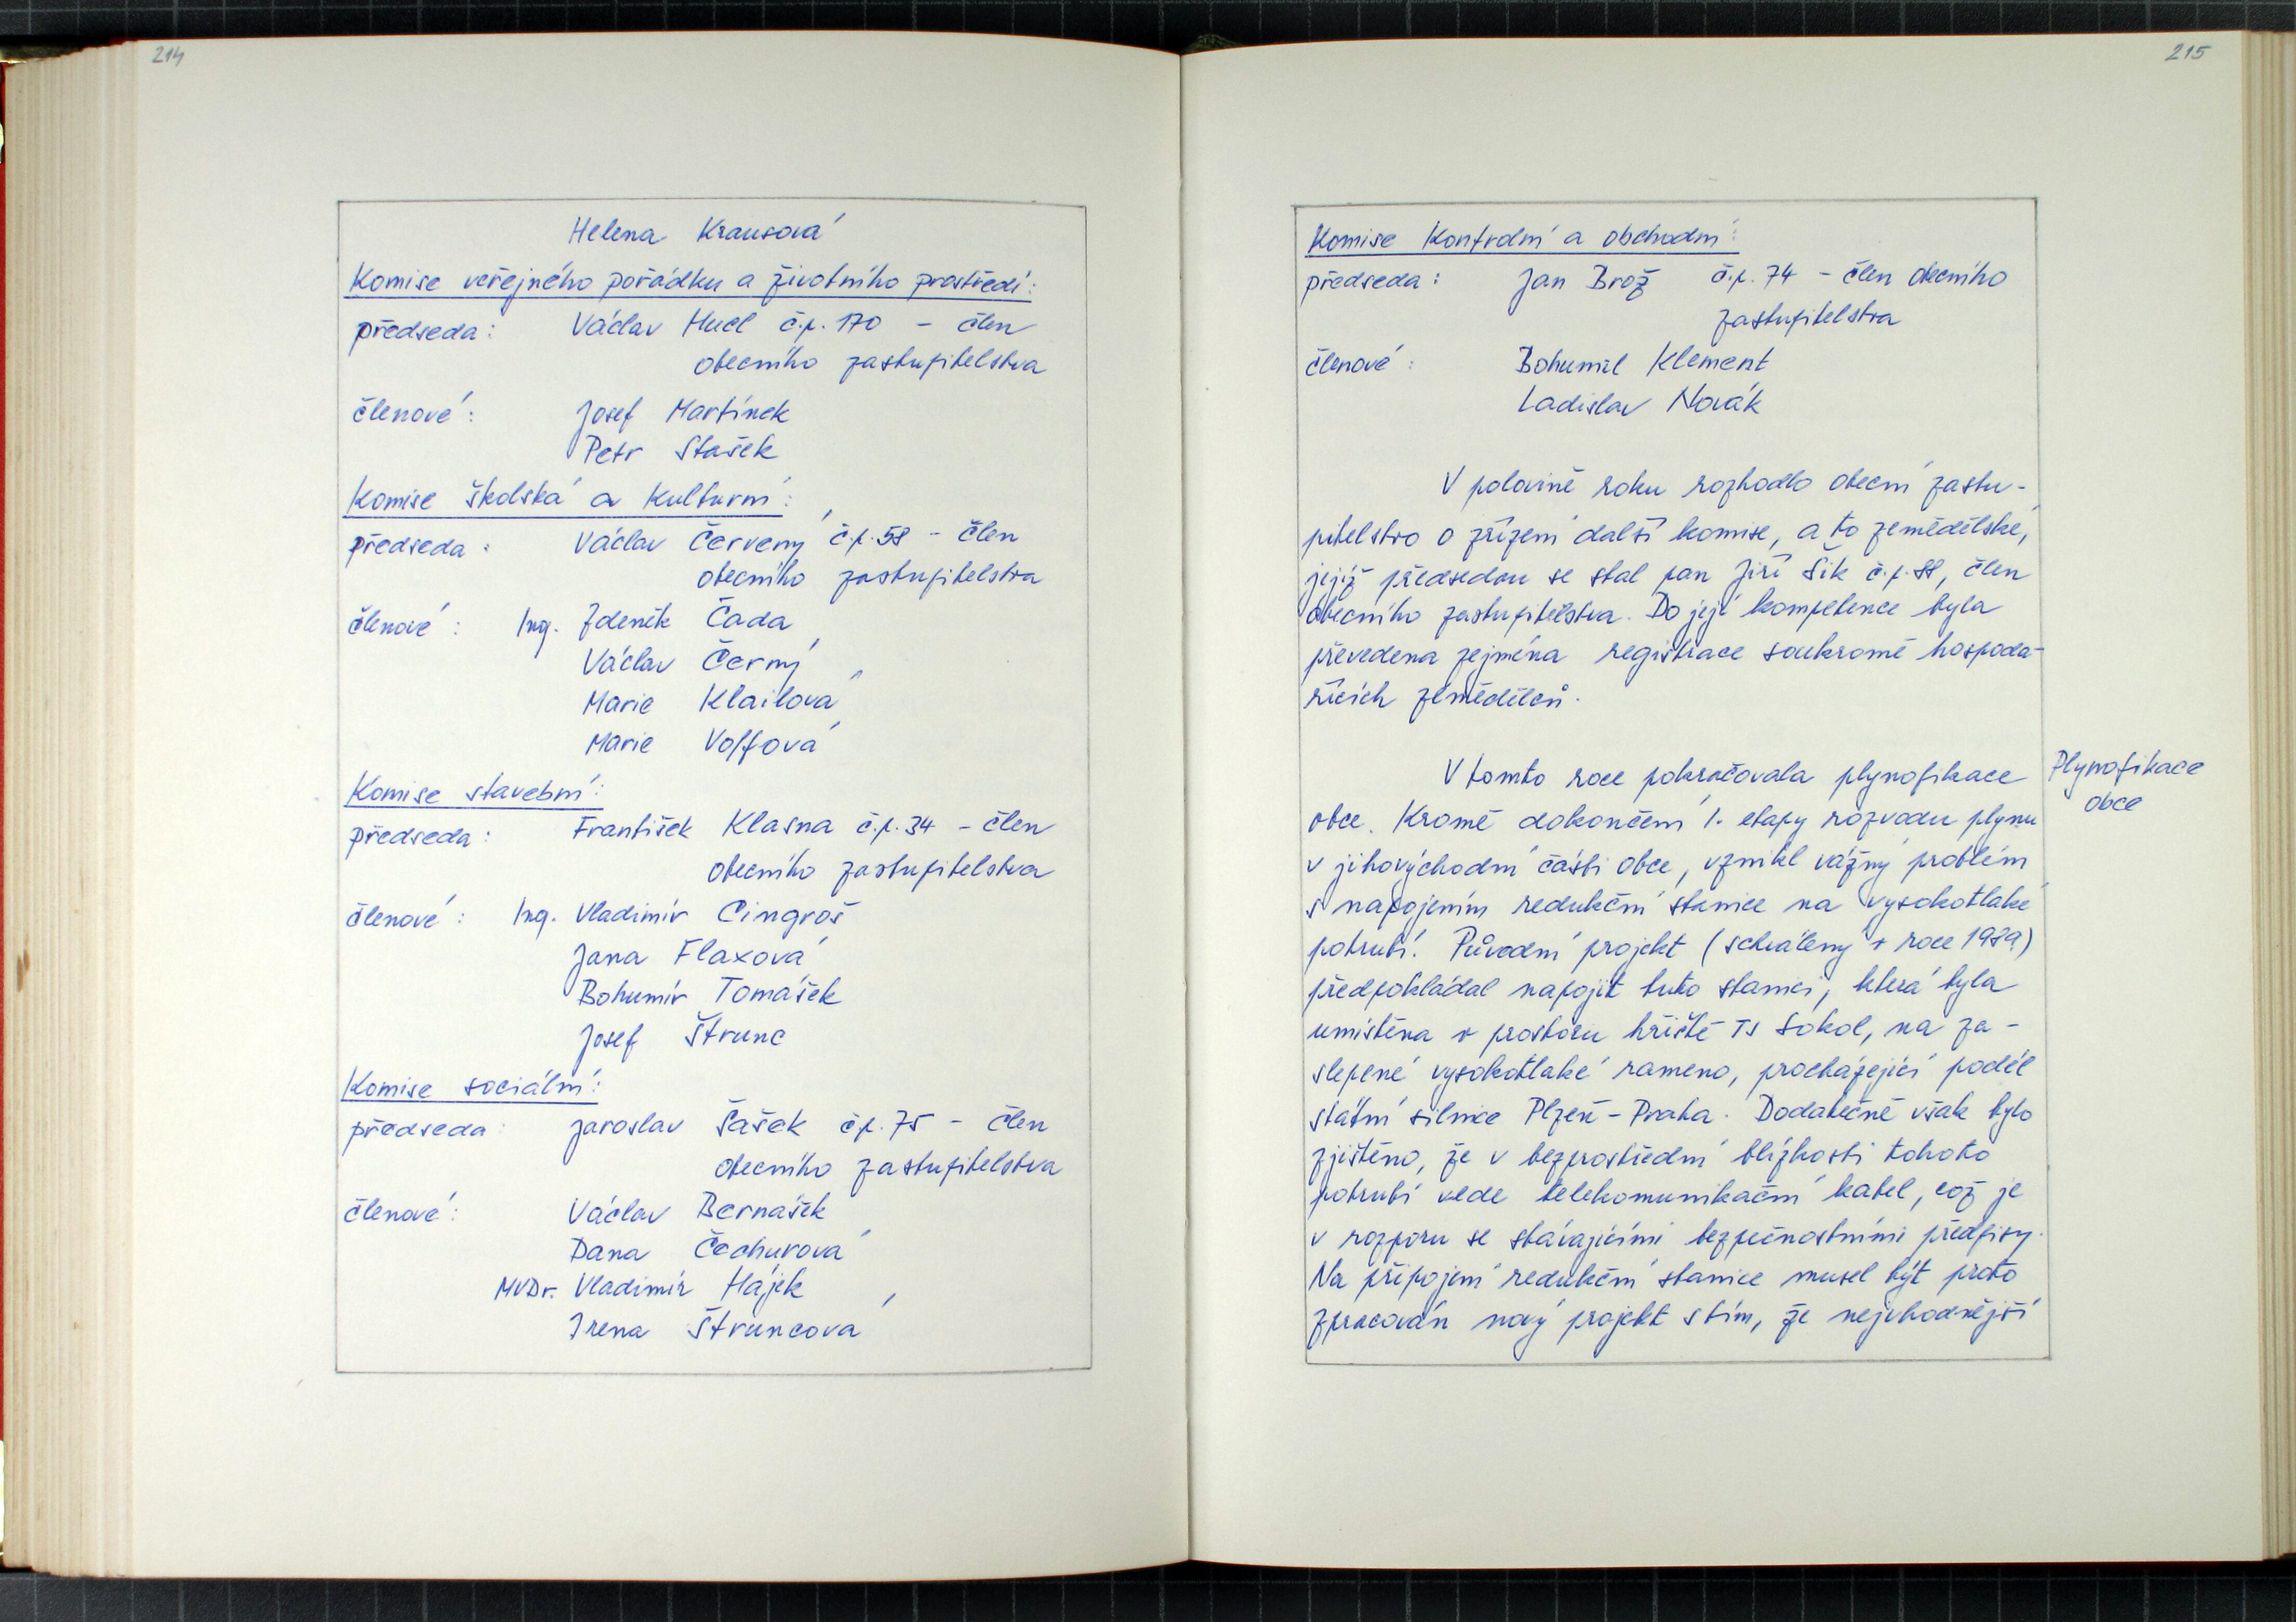 214
Helena Krausová
Komise veřejného pořádku a životního prostředí:
předseda: Václav Hucl č.p. 170 - člen
obecního zastupitelstva
členové: Josef Martínek
Petr Stašek
Komise školská a kulturní:
předseda: Václav Červený č.p. 58 - člen
obecního zastupitelstva
členové: Ing. Zdeněk Čada
Václav Černý
Marie Klailová
Marie Volfová
Komise stavební:
předseda: František Klasna č.p. 34 - člen
obecního zastupitelstva
členové: Ing. Vladimír Cingroš
Jana Flaxová
Bohumír Tomášek
Josef Štrunc
Komise sociální:
předseda: Jaroslav Šašek č.p. 75 - člen
obecního zastupitelstva
členové: Václav Bernášek
Dana Čechurová
MVDr. Vladimír Hájek
Irena Štruncová
215
Komise kontrolní a obchodní:
předseda: Jan Brož č.p. 74 - člen obecního
zastupitelstva
členové: Bohumil Klement
Ladislav Novák
V polovině roku rozhodlo obecní zastu-
pitelstvo o zřízení další komise, a to zemědělské,
jejíž předsedou se stal pan Jiří Šik č.p. 88, člen
obecního zastupitelstva. Do její kompetence byla
převedena zejména registrace soukromě hospoda-
řících zemědělců.
V tomto roce pokračovala plynofikace
obce. Kromě dokončení 1. etapy rozvodu plynu
v jihovýchodní části obce, vznikl vážný problém
s napojením redukční stanice na vysokotlaké
potrubí. Původní projekt (schválený v roce 1989)
předpokládal napojit tuto stanici, která byla
umístěna v prostoru hřiště TJ Sokol, na za-
slepené vysokotlaké rameno, procházející podél
státní silnice Plzeň - Praha. Dodatečně však bylo
zjištěno, že v bezprostřední blízkosti tohoto
potrubí vede telekomunikační kabel, což je
v rozporu se stávajícími bezpečnostními předpisy.
Na připojení redukční stanice musel být proto
zpracován nový projekt s tím, že nejvhodnější
Plynofikace
obce